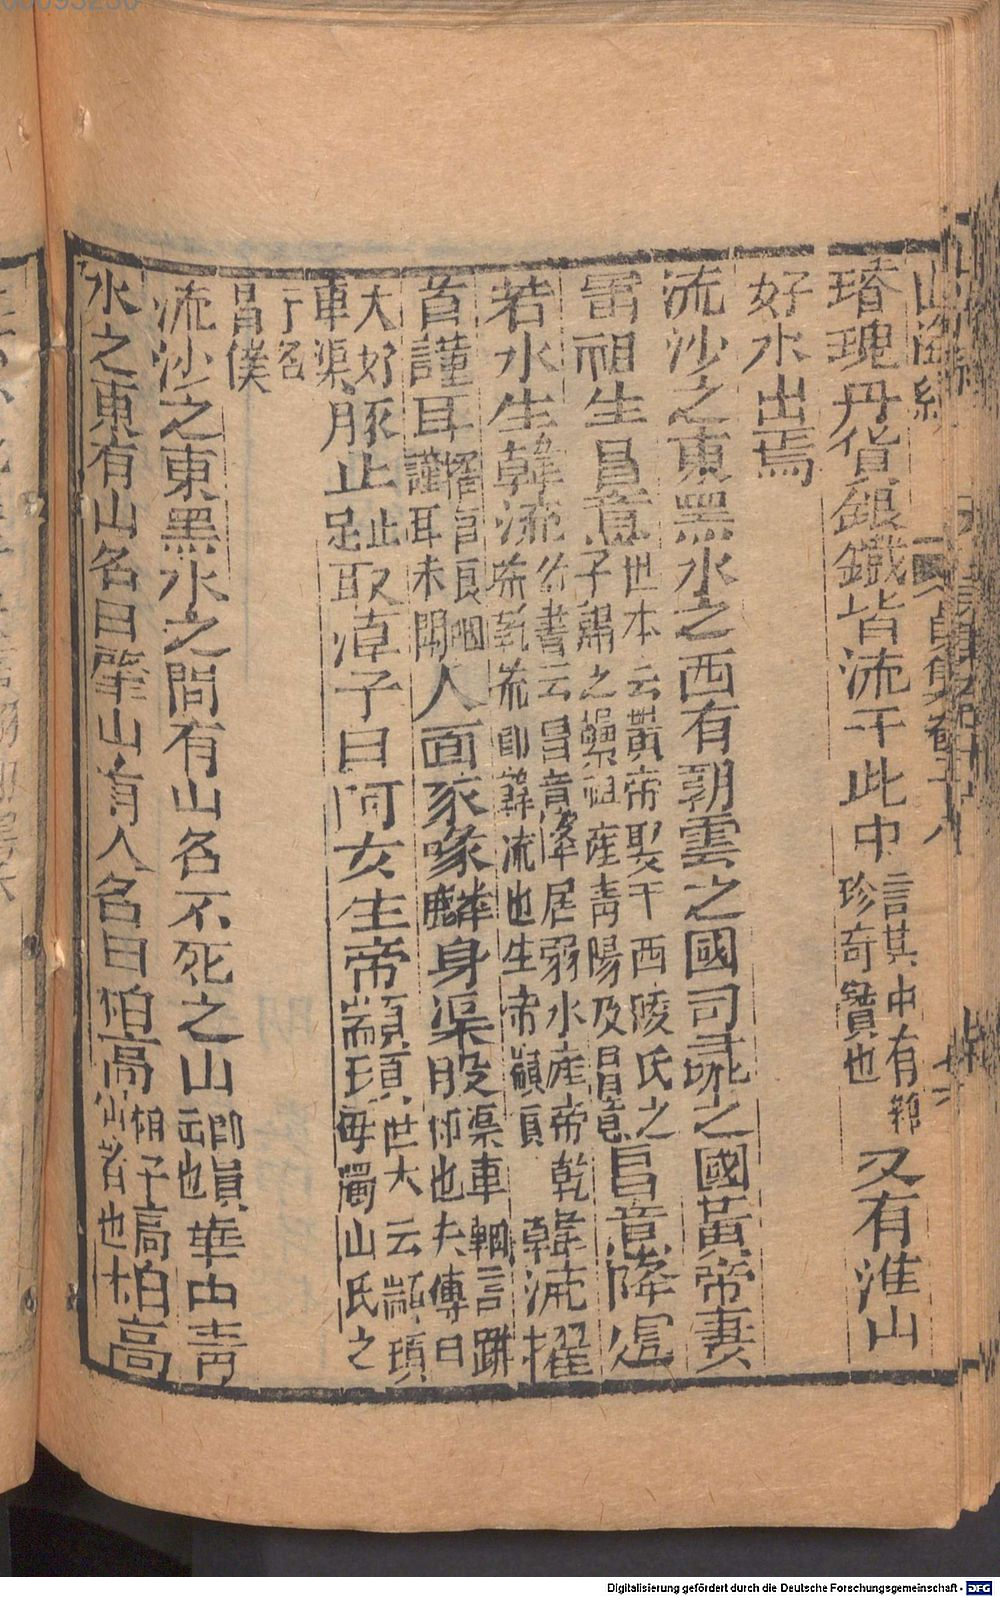 山海經 貞集卷十八
璿瑰丹貨銀鐵皆流于此中言其中有雜珍奇寶也又有淮山
好水出焉
流沙之東黑水之西有朝雲之國司彘之國黃帝妻
雷祖生昌意世本云黃帝娶于西陵氏之子謂之纍祖產青陽及昌意昌意降處
若水生韓流竹書云昌意降居弱水產帝乾荒乾荒即韓流也生帝顓頊韓流擢
首謹耳擢首長咽謹耳未聞人面豕喙麟身渠股渠車輞言跰脚也大傳曰
大好車渠豚止止足取淖子曰阿女生帝顓頊世大云顓頊母濁山氏之
子名昌僕
流沙之東黑水之間有山名不死之山即員云也華山青
水之東有山名曰肇山有人名曰柏高柏子高仙者也柏高
Digitalisierung gefördert durch die Deutsche Forschungsgemeinschaft - DFG